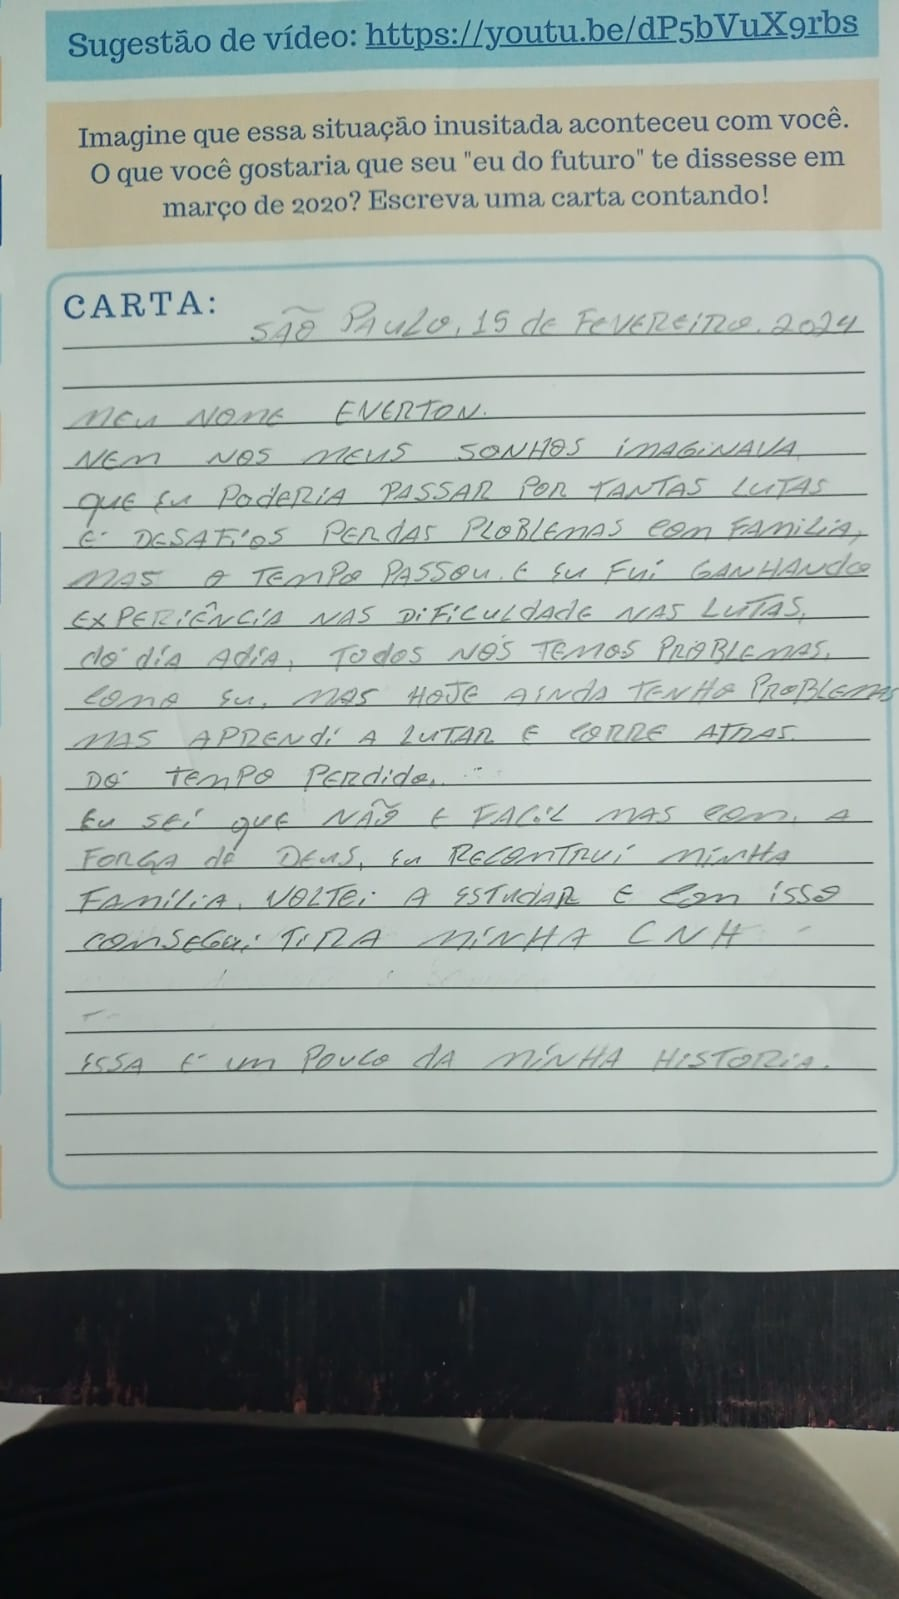 Sugestão de vídeo: https://youtu.be/dP5bVuX9rbs
Imagine que essa situação inusitada aconteceu com você.
O que você gostaria que seu "eu do futuro" te dissesse em
março de 2020? Escreva uma carta contando!
CARTA:
SÃO PAULO, 15 de FEVEREIRO. 2024
MEU NOME EVERTON.
NEM NOS MEUS SONHOS IMAGINAVA
QUE EU PODERIA PASSAR POR TANTAS LUTAS
E DESAFIOS PERDAS PLOBLEMAS COM FAMILIA,
MAS O TEMPO PASSOU. E EU FUI GANHANDO
EXPERIÊNCIA NAS DIFICULDADE NAS LUTAS,
DO DIA ADIA, TODOS NÓS TEMOS PROBLEMAS,
COMO EU, MAS HOJE AINDA TENHO PROBLEMAS
MAS APRENDI A LUTAR E CORRE ATRAS.
DO TEMPO PERDIDO.
EU SEI QUE NÃO E FACIL MAS COM, A
FORÇA DE DEUS, EU RECONTRUI MINHA
FAMÍLIA, VOLTEI A ESTUDAR E COM ISSO
CONSEGUI TIRA MINHA CNH
ESSA E UM POUCO DA MINHA HISTORIA.